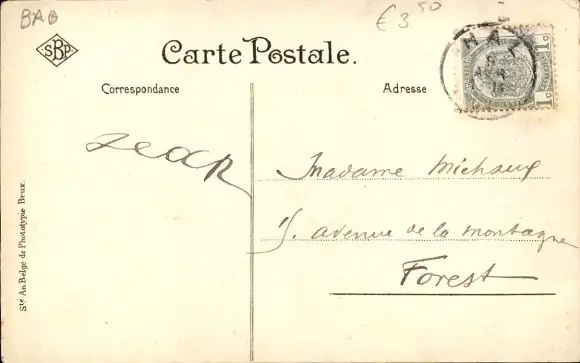 BAB
€ 3 50
SBP
Carte Postale.
Correspondance
Adresse
HAL
1c 1c
Madame Michaux
15. avenue de la montagne
Forest
Sté An. Belge de Phototypie Brux.